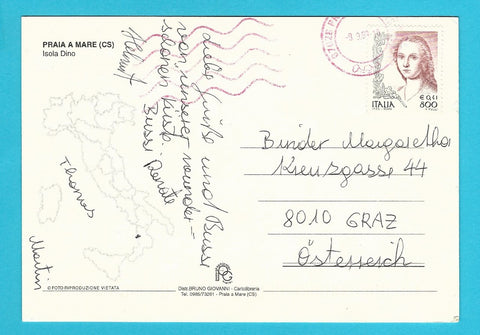 PRAIA A MARE (CS)
Isola Dino
Liebe Grüße und Bussi
von unserer wunder-
schönen Küste.
Bussi Renate
Helmut
Thomas
Martin
ITALIA
800
Binder Margaretha
Kreuzgasse 44
8010 GRAZ
Österreich
© FOTO RIPRODUZIONE VIETATA
Distr. BRUNO GIOVANNI - Cartolibreria
Tel. 0985/73261 - Praia a Mare (CS)